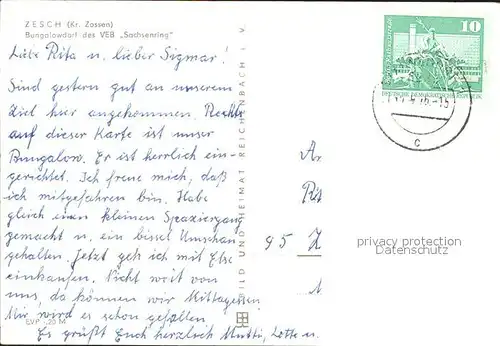 ZESCH (Kr. Zossen)
Bungalowdorf des VEB „Sachsenring"
Liebe Rita u. lieber Sigmar!
Sind gestern gut an unserem
Ziel hier angekommen. Rechts
auf dieser Karte ist unser
Bungalow. Es ist herrlich ein-
gerichtet. Ich freue mich, daß
ich mitgefahren bin. Habe
gleich einen kleinen Spaziergang
gemacht u. ein bissel Umschau
gehalten. Jetzt geh ich mit Else
einkaufen. Nicht weit von
uns, da können wir Mittagessen.
Mir wird es schon gefallen.
Es grüßt Euch herzlich Mutti, Lotte u.
EVP -,20 M
BILD UND HEIMAT REICHENBACH I. V.
10
DEUTSCHE DEMOKRATISCHE REPUBLIK
c
An
Rit
95 Z
privacy protection
Datenschutz